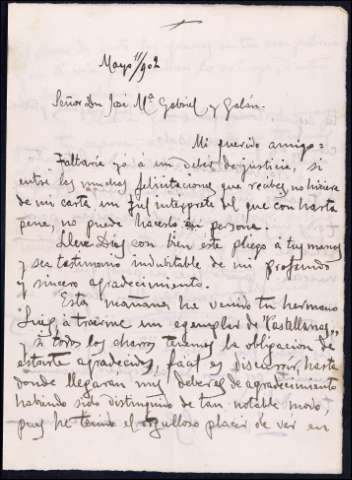 Mayo 11/902
Señor Don José Mª Gabriel y Galán.
Mi querido amigo:
Faltaría yo á un deber de justicia, si
entre las muchas felicitaciones que recibes, no hiciera
de mi carta un fiel intérprete del que con harta
pena, no puede hacerlo en persona.
Lleve Dios con bien este pliego á tus manos
y sea testimonio indubitable de mi profundo
y sincero agradecimiento.
Esta mañana he venido tu hermano
Luis, á traerme un ejemplar de "Castellanas„
y si todos los charros tenemos la obligación de
estarte agradecidos, fácil es discurrir, hasta
donde llegaran mis deberes de agradecimiento
habiendo sido distinguido de tan notable modo,
pues he tenido el orgulloso placer de ver en